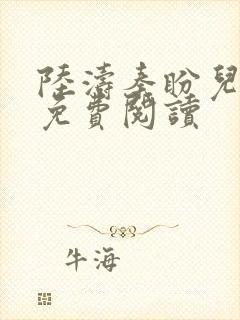 陸濤秦盼兒
免費閱讀
牛海